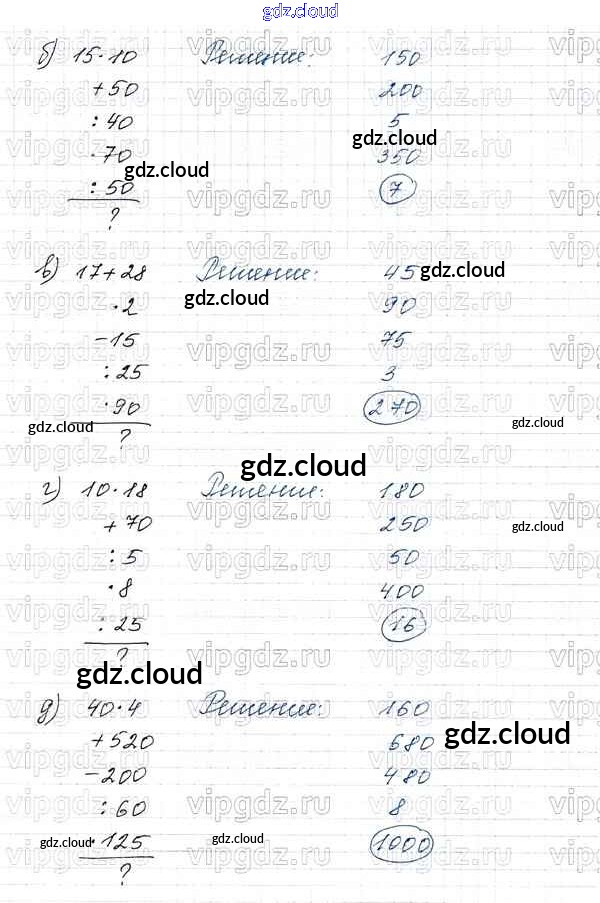 gdz.cloud
б) 15·10 Решение: 150
+50 200
:40 5
gdz.cloud
·70 350
gdz.cloud
:50 7
?
в) 17+28 Решение: 45 gdz.cloud
gdz.cloud
·2 90
-15 75
:25 3
·90 270
gdz.cloud ? gdz.cloud
gdz.cloud
г) 10·18 Решение: 180
+70 250 gdz.cloud
:5 50
·8 400
:25 16
?
gdz.cloud
д) 40·4 Решение: 160
+520 680 gdz.cloud
-200 480
:60 8
gdz.cloud ·125 gdz.cloud 1000
?
vipgdz.ru vipgdz.ru vipgdz.ru